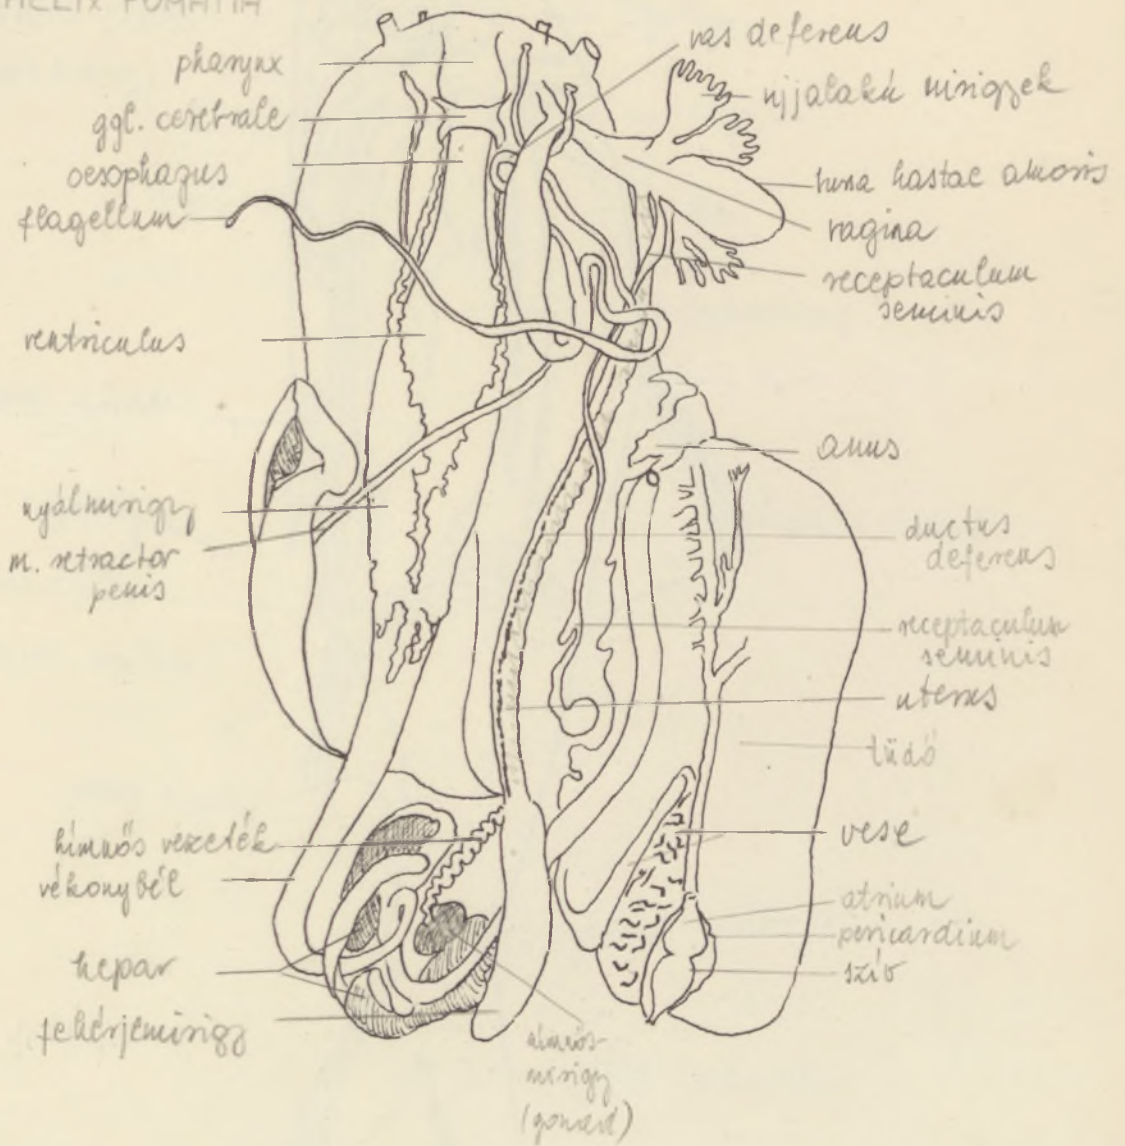 HELIX POMATIA
pharynx
ggl. cerebrale
oesophagus
flagellum
ventriculus
nyálmirigy
m. retractor
penis
hímnős vezeték
vékonybél
hepar
fehérjemirigy
hímnős-
mirigy
(gonad)
vas deferens
ujjalakú mirigyek
bursa hastae amoris
vagina
receptaculum
seminis
anus
ductus
deferens
receptaculum
seminis
uterus
tüdő
vese
atrium
pericardium
szív